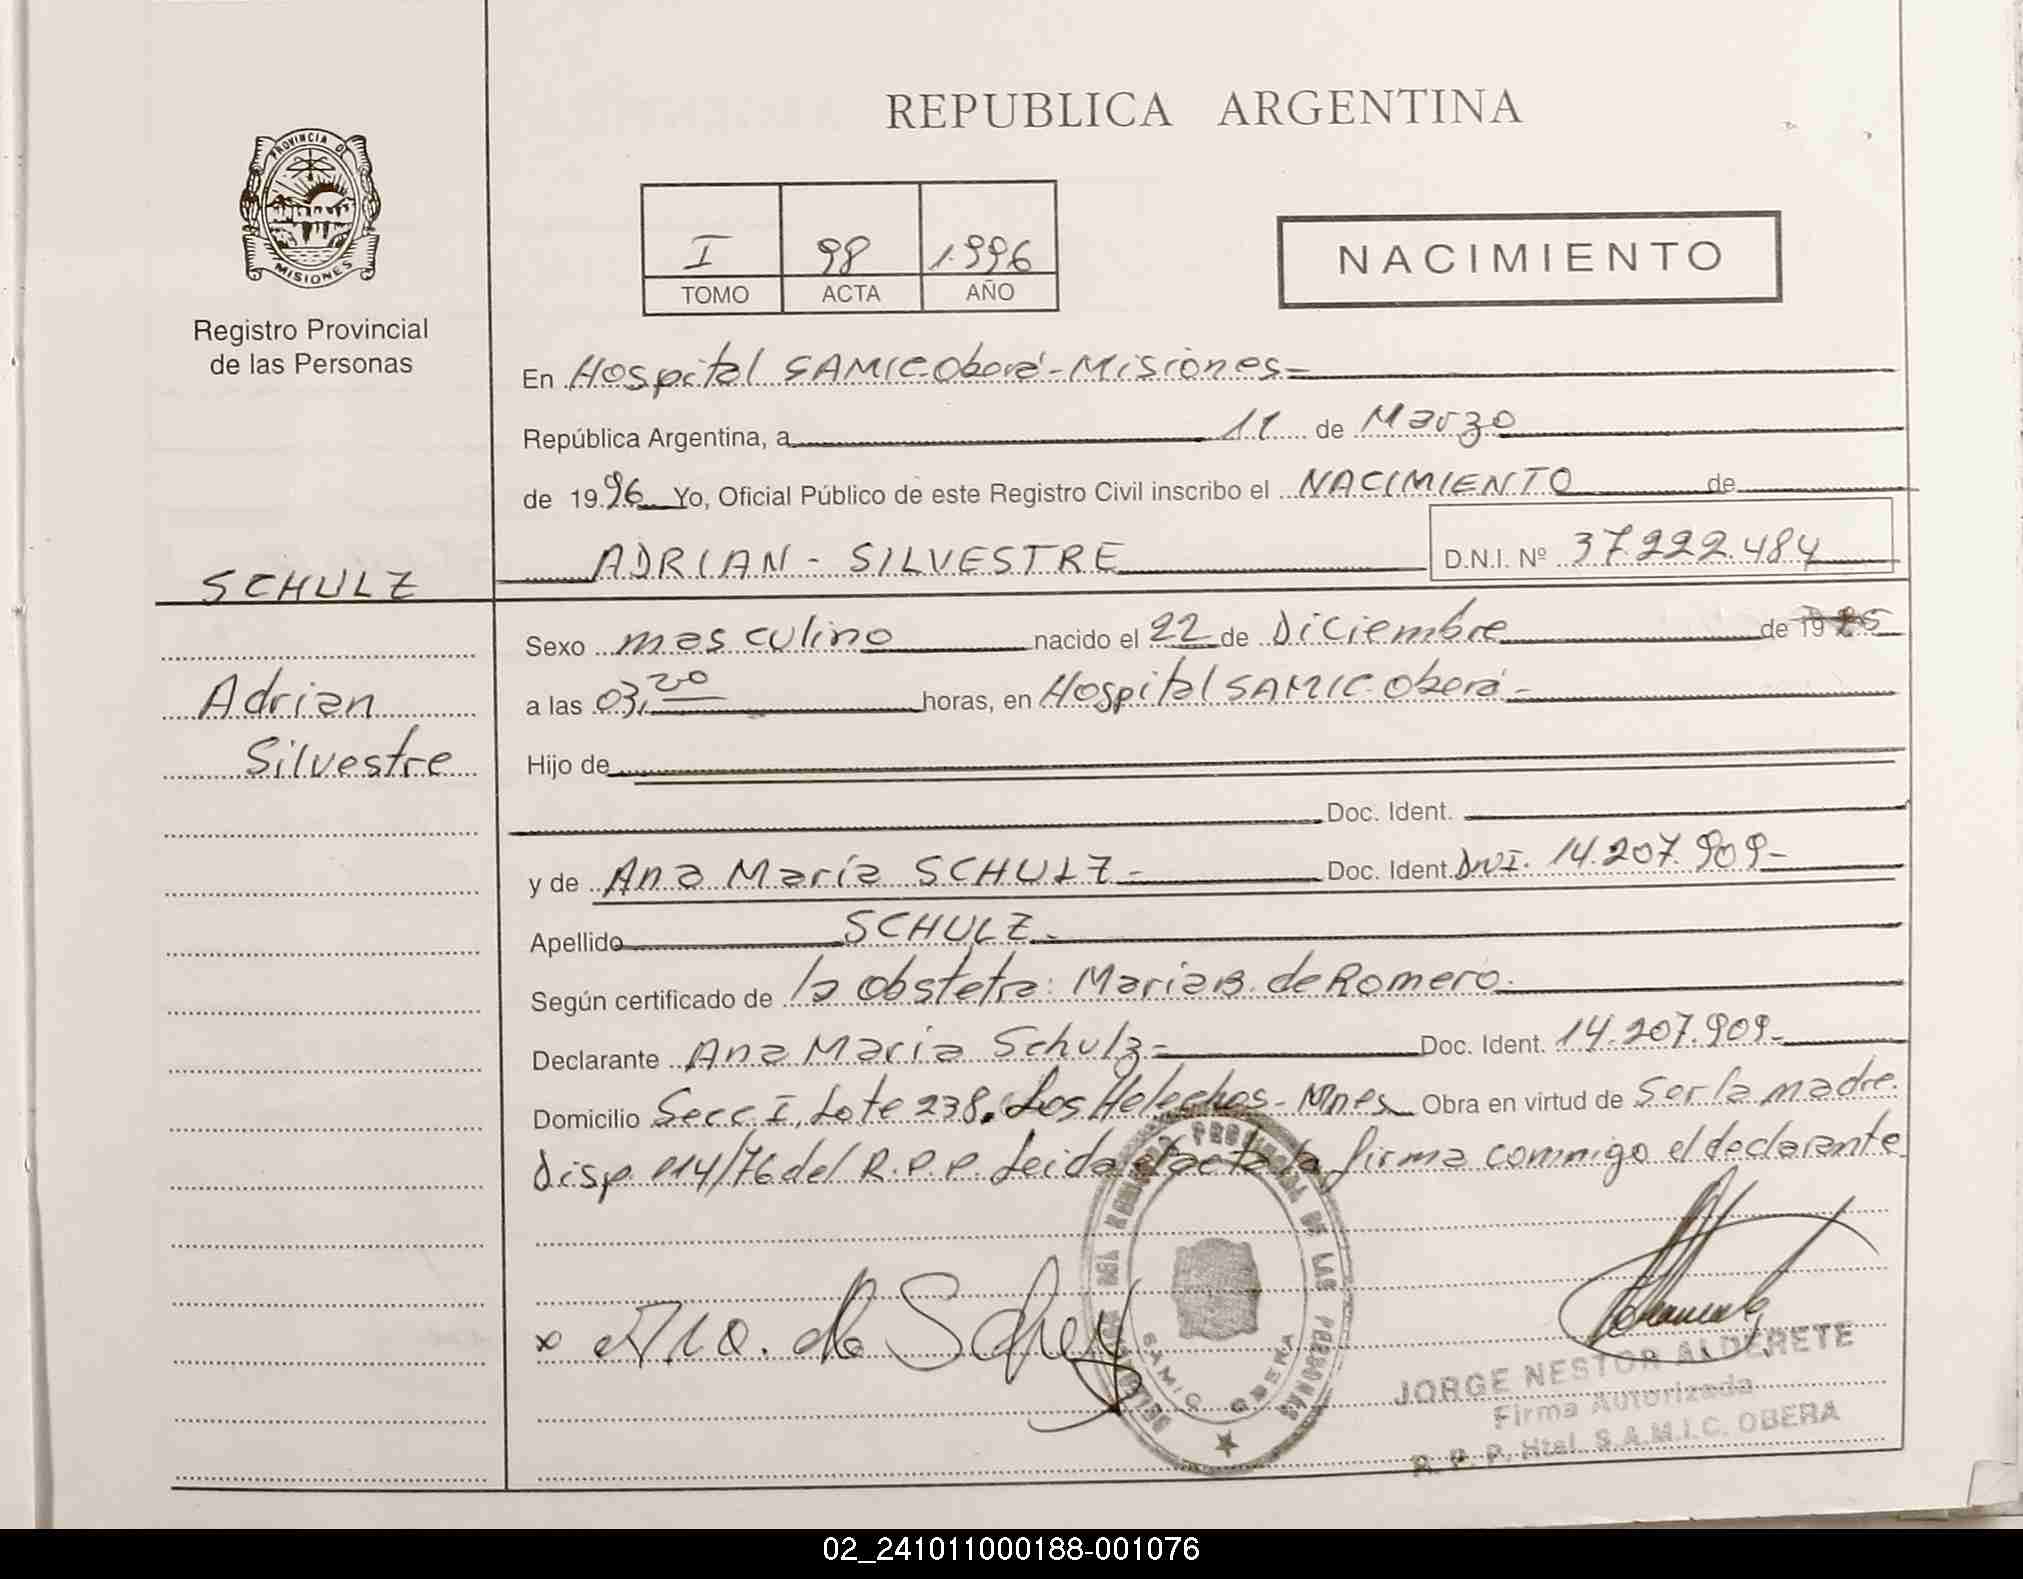 REPUBLICA ARGENTINA
PROVINCIA DE
MISIONES
Registro Provincial
de las Personas
I 98 1.996
TOMO ACTA AÑO
NACIMIENTO
En Hospital SAMIC Oberá - Misiones -
República Argentina, a 11 de Marzo
de 1996 Yo, Oficial Público de este Registro Civil inscribo el NACIMIENTO de
SCHULZ
Adrian
Silvestre
ADRIAN - SILVESTRE D.N.I. Nº 37.222.484
Sexo masculino nacido el 22 de Diciembre de 19
a las 03,20 horas, en Hospital SAMIC Oberá -
Hijo de
Doc. Ident.
y de Ana María SCHULZ - Doc. Ident. DNI. 14.207.909-
Apellido SCHULZ -
Según certificado de la Obstetra: Maria B. de Romero.
Declarante Ana Maria Schulz - Doc. Ident. 14.207.909-
Domicilio Secc I, Lote 238, Los Helechos - Mnes Obra en virtud de Ser la madre.
Disp. 114/76 del R.P.P. Leida el acta la firma conmigo el declarante
DE LAS PERSONAS
SAMIC OBERA
JORGE NESTOR ALDERETE
Firma Autorizada
R. P. P. Htal. S.A.M.I.C. OBERA
02_241011000188-001076